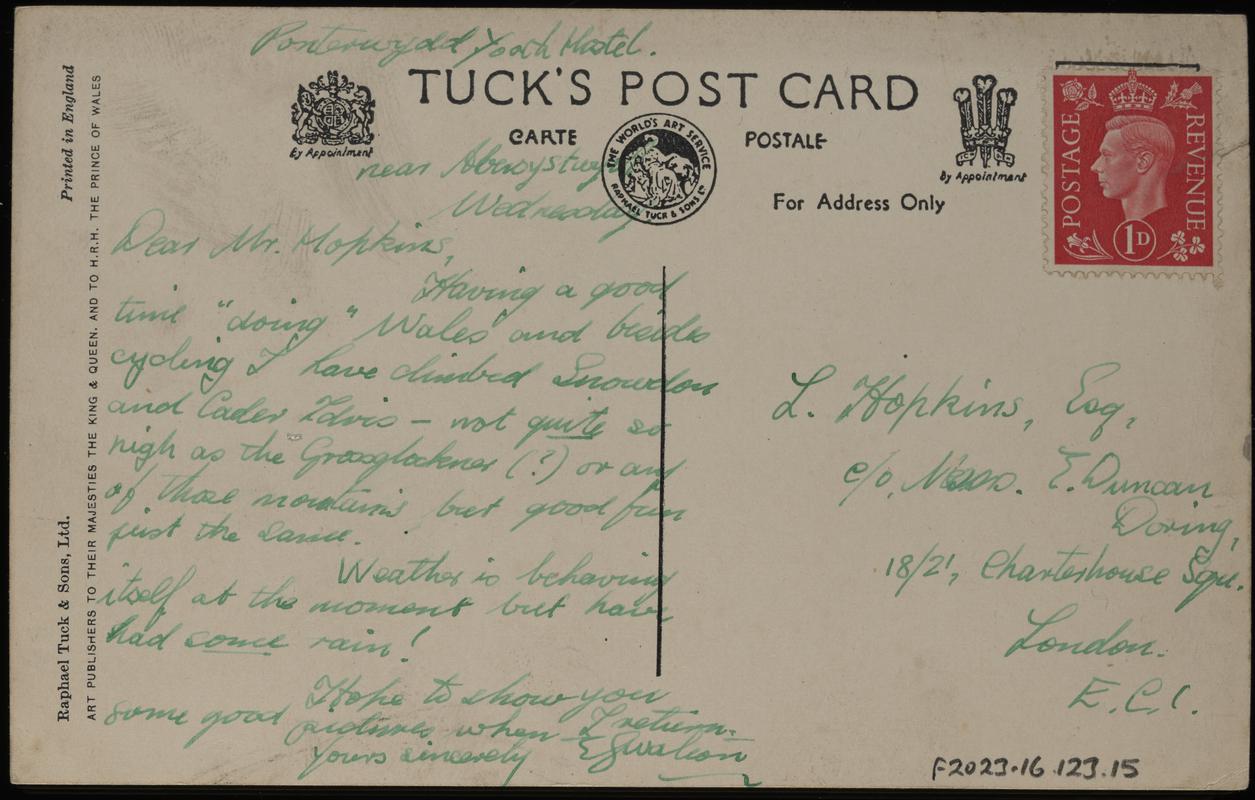 Ponterwydd Youth Hostel.
TUCK'S POST CARD
CARTE POSTALE
By Appointment
THE WORLD'S ART SERVICE
RAPHAEL TUCK & SONS LTD
By Appointment
For Address Only
POSTAGE REVENUE
1D
near Aberystwyth
Wednesday
Dear Mr. Hopkins,
Having a good
time "doing" Wales and besides
cycling I have climbed Snowdon
and Cader Idris – not quite so
high as the Grossglockner (?) or any
of those mountains but good fun
just the same.
Weather is behaving
itself at the moment but have
had some rain!
Hope to show you
some good pictures when I return.
Yours sincerely
L. Hopkins, Esq,
c/o, Mess. E. Duncan
Doring,
18/21, Charterhouse Squ.
London.
E.C.1.
Raphael Tuck & Sons, Ltd. Printed in England
ART PUBLISHERS TO THEIR MAJESTIES THE KING & QUEEN. AND TO H.R.H. THE PRINCE OF WALES
F2023.16.123.15